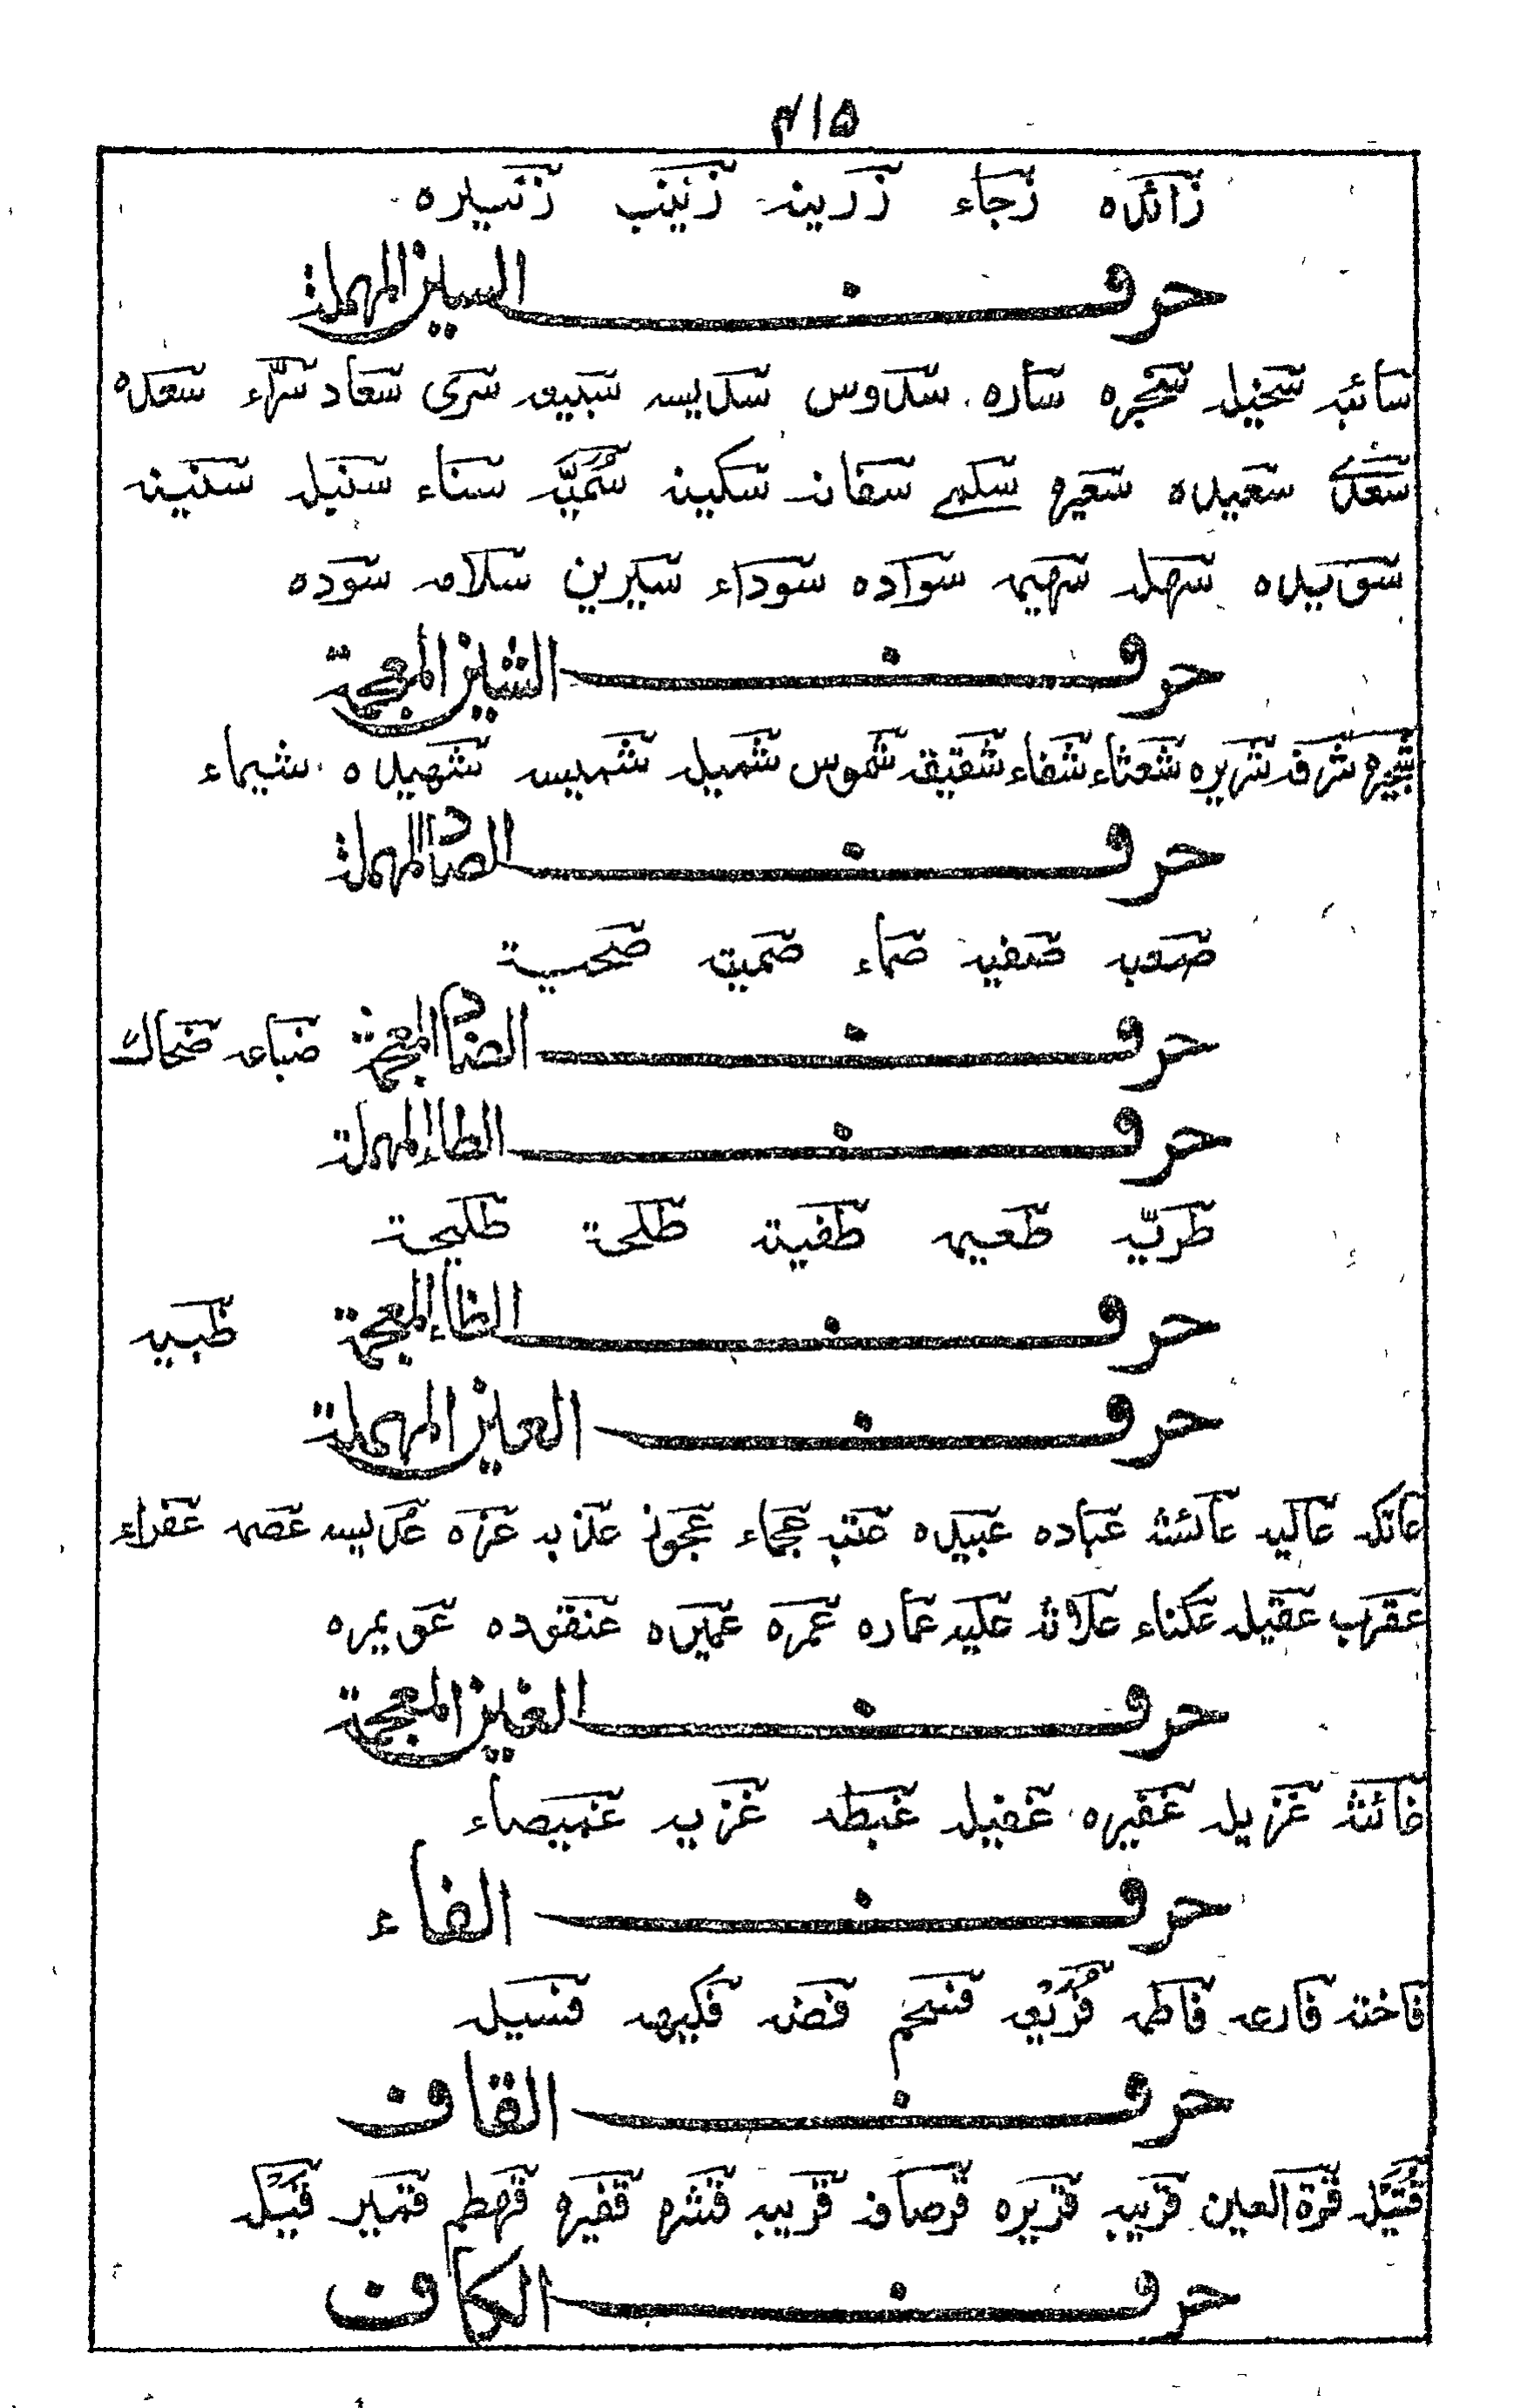 ۴۱۵
زائده زجاء زرینه زینب زنبیره
حرف السین المهملة
سائبه سخیله سخبره ساره سدوس سدیسه سبیعه سری سعاد سراء سعده
سعدے سعیده سعیره سلمے سفانه سکینه سمیه سناء سنبله سنینه
سویده سهله سهیمه سواده سوداء سیرین سلامه سوده
حرف الشین المعجمة
شرفه شریره شعثاء شفاء شقیقه شموس شمیله شمیسه شهیده شیماء
حرف الصاد المهملة
صعبه صفیه صماء صمیته
حرف الضاد المعجمة ضباعه ضحاك
حرف الطاء المهملة
طریّه طعیمه طفیة طلحة طلیحة
حرف الظاء المعجمة ظبیه
حرف العین المهملة
عاتکه عالیه عائشه عباده عبیده عتبه عجماء عجوز عذبه عزه عدیسه عصمه عفراء
عقرب عقیله عکناء علاثه علیه عماره عمره عمیره عنقوده عویمره
حرف الغین المعجمة
غائثه غزیله غفیره غفیله غبطه غزیه غمیصاء
حرف الفاء
فاخته فارعه فاطمه فریعه فسحم فضه فکیهه فسیله
حرف القاف
قتیله قرة العین قریبه قریره قرصافه قریبه قفیره قهطم قیله
حرف الکاف